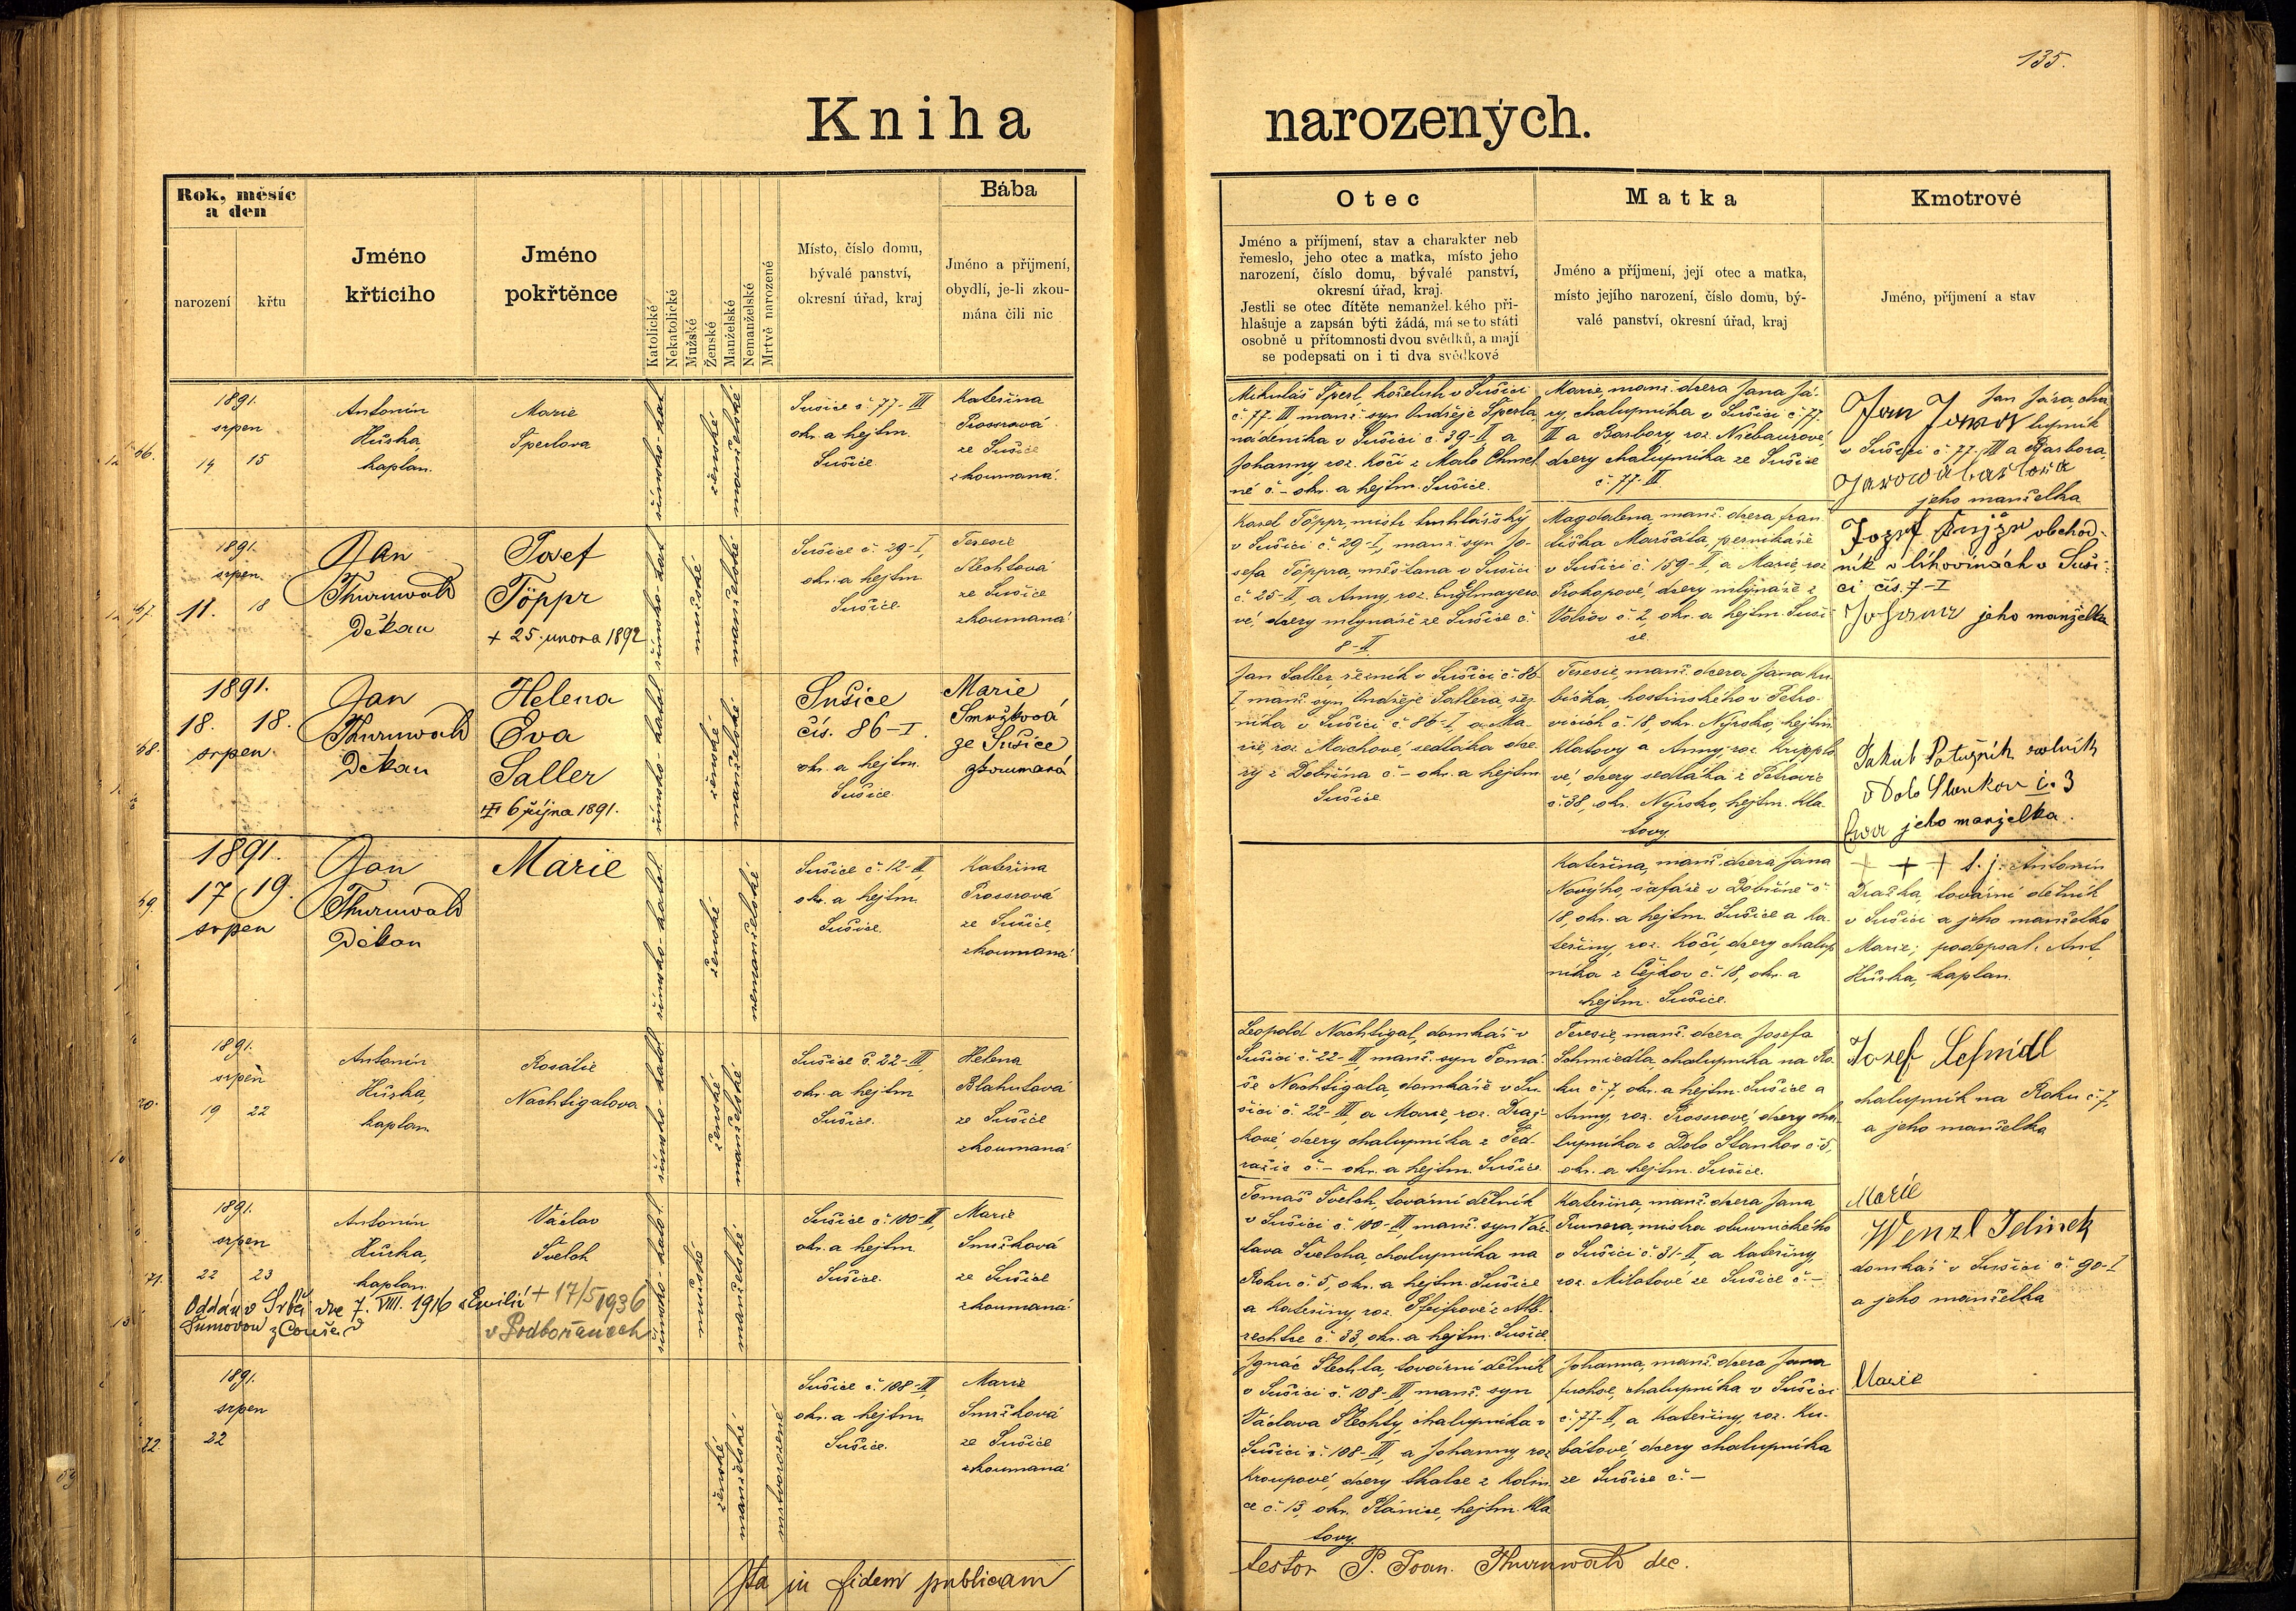 135.
Kniha
narozených.
Rok, měsíc
a den
narození
křtu
Jméno
křtícího
Jméno
pokřtěnce
Katolické
Nekatolické
Mužské
Ženské
Manželské
Nemanželské
Mrtvě narozené
Místo, číslo domu,
bývalé panství,
okresní úřad, kraj
Bába
Jméno a přijmení,
obydlí, je-li zkou-
mána čili nic
Otec
Jméno a příjmení, stav a charakter neb
řemeslo, jeho otec a matka, místo jeho
narození, číslo domu, bývalé panství,
okresní úřad, kraj.
Jestli se otec dítěte nemanželského při-
hlašuje a zapsán býti žádá, má se to státi
osobně u přítomnosti dvou svědků, a mají
se podepsati on i ti dva svědkové
Matka
Jméno a příjmení, její otec a matka,
místo jejího narození, číslo domu, bý-
valé panství, okresní úřad, kraj
Kmotrové
Jméno, příjmení a stav
66.
1891.
srpen
14 15
Antonín
Hůrka,
kaplan.
Marie
Šperlova
římsko-kat
ženské
manželské
Sušice č. 77-III
okr. a hejtm.
Sušice.
Kateřina
Prossrová
ze Sušice
zkoumaná.
Mikuláš Šperl, koželuh v Sušici
č. 77-III manž. syn Ondřeje Šperla,
nádeníka v Sušici č. 39-II, a
Johanny, roz. Kočí z Malo Chmel
né č.- okr. a hejtm. Sušice.
Marie, manž. dcera Jana Já-
ry, chalupníka v Sušici č. 77.
III a Barbory, roz. Niebaurové,
dcery chalupníka ze Sušice
č. 77-III.
Jan Jára, cha
lupník
v Sušici č. 77-III a Barbora,
jeho manželka
67.
1891.
srpen.
11. 18
Jan
Thurnwald
Děkan
Josef
Töppr
+ 25. února 1892
římsko-kat
mužské
manželské
Sušice č. 29-I,
okr. a hejtm.
Sušice.
Teresie
Šlechtová
ze Sušice
zkoumaná.
Karel Töppr, mistr truhlářský
v Sušici č. 29-I, manž. syn Jo-
sefa Töppra, měšťana v Sušici
č. 25-II, a Anny, roz. Englmayero
vé, dcery mlynáře ze Sušice č.
8-II.
Magdalena, manž. dcera Fran
tiška Maršála, perníkáře
v Sušici č. 159-II, a Marie, roz.
Prokopové, dcery mlynáře z
Volšov č. 2, okr. a hejtm. Suši
ce.
obchod-
ník v lihovinách v Suši-
ci čís. 7-I
jeho manželka
68.
1891.
18. 18.
srpen.
Jan
Thurnwald
Děkan
Helena
Eva
Saller
6 října 1891.
římsko-katol
ženské
manželské
Sušice
čís. 86-I.
okr. a hejtm.
Sušice.
Marie
Smržková
ze Sušice
zkoumaná
Jan Saller, řezník v Sušici č. 86
I, manž. syn Ondřeje Sallera, řez
níka v Sušici č. 86-I, a Ma-
rie, roz. Machové, sedláka dce-
ry z Dobršína č.- okr. a hejtm
Sušice
Teresie, manž. dcera Jana Ku
bíčka, hostinského v Petro-
vicích č. 18, okr. Nýrsko, hejtm
Klatovy a Anny, roz. Kripplo
vé, dcery sedláka z Petrovic
č. 38, okr. Nýrsko, hejtm. Kla
tovy.
Jakub Potužník rolník
v Dolo Staňkov č. 3
Eva jeho manželka.
69.
1891.
17 19.
srpen
Jan
Thurnwald
Děkan
Marie
římsko-katol.
ženské
nemanželské
Sušice č. 12-III,
okr. a hejtm.
Sušice.
Kateřina
Prossrová
ze Sušice,
zkoumaná.
Kateřina, manž. dcera Jana
Novýho, šafáře v Dobršíně č.
18, okr. a hejtm. Sušice a Ka-
teřiny, roz. Kočí, dcery chalup
níka z Čejkov č. 18, okr. a
hejtm. Sušice.
+ + + t. j. Antonín
Dražka, tovární dělník
v Sušici a jeho manželka
Marie; podepsal: Ant.
Hůrka, kaplan.
70.
1891.
srpen
19 22
Antonín
Hůrka,
kaplan.
Rosálie
Nachtigalova
římsko-katol
ženské
manželské
Sušice č. 22-III,
okr. a hejtm
Sušice.
Helena
Blahutová
ze Sušice
zkoumaná
Leopold Nachtigal, domkář v
Sušici č. 22-III, manž. syn Tomá-
še Nachtigala, domkáře v Su-
šici č. 22-III, a Marie, roz. Draž-
kové, dcery chalupníka z Ped-
ražic č.- okr. a hejtm. Sušice.
Teresie, manž. dcera Josefa
Schmiedla, chalupníka na Ro
ku č. 7, okr. a hejtm. Sušice a
Anny, roz. Prosserové, dcery cha-
lupníka z Dolo Staňkov č. 5,
okr. a hejtm. Sušice.
Josef Schmidl
chalupník na Roku č. 7,
a jeho manželka
Marie
71.
1891.
srpen
22 23
Antonín
Hůrka,
kaplan.
Václav
Švelch
Oddán v Srbči dne 7. VIII. 1916 s Emilií
Šumovou
+ 17/5 1936
v Podbořanech
římsko-katol
mužské
manželské
Sušice č. 100-III,
okr. a hejtm
Sušice.
Marie
Smržková
ze Sušice
zkoumaná.
Tomáš Švelch, tovární dělník
v Sušici č. 100-III, manž. syn Vác-
lava Švelcha, chalupníka na
Roku č. 5, okr. a hejtm. Sušice
a Kateřiny, roz. Pfeifrové z Alb-
rechtce č. 33, okr. a hejtm. Sušice.
Kateřina, manž. dcera Jana
Prunera, mistra obuvnického
v Sušici č. 31-II, a Kateřiny,
roz. Milotové ze Sušice č.-
Wenzl Jelinek
domkář v Sušici č. 90-I
a jeho manželka
Marie
72.
1891.
srpen
22
ženské
manželské
mrtvorozené
Sušice č. 108-III,
okr. a hejtm
Sušice.
Marie
Smržková
ze Sušice
zkoumaná
Ignác Šlechta, tovární dělník
v Sušici č. 108-III, manž. syn
Václava Šlechty, chalupníka v
Sušici č. 108-III, a Johanny, roz
Kroupové, dcery tkalce z Kolin
ce č. 13, okr. Plánice, hejtm. Kla
tovy.
Johanna, manž. dcera Jana
Fuchse, chalupníka v Sušici
č. 77-II, a Kateřiny, roz. Ku-
bátové, dcery chalupníka
ze Sušice č.-
Ita in fidem publicam
testor P. Joan. Thurnwald dec.